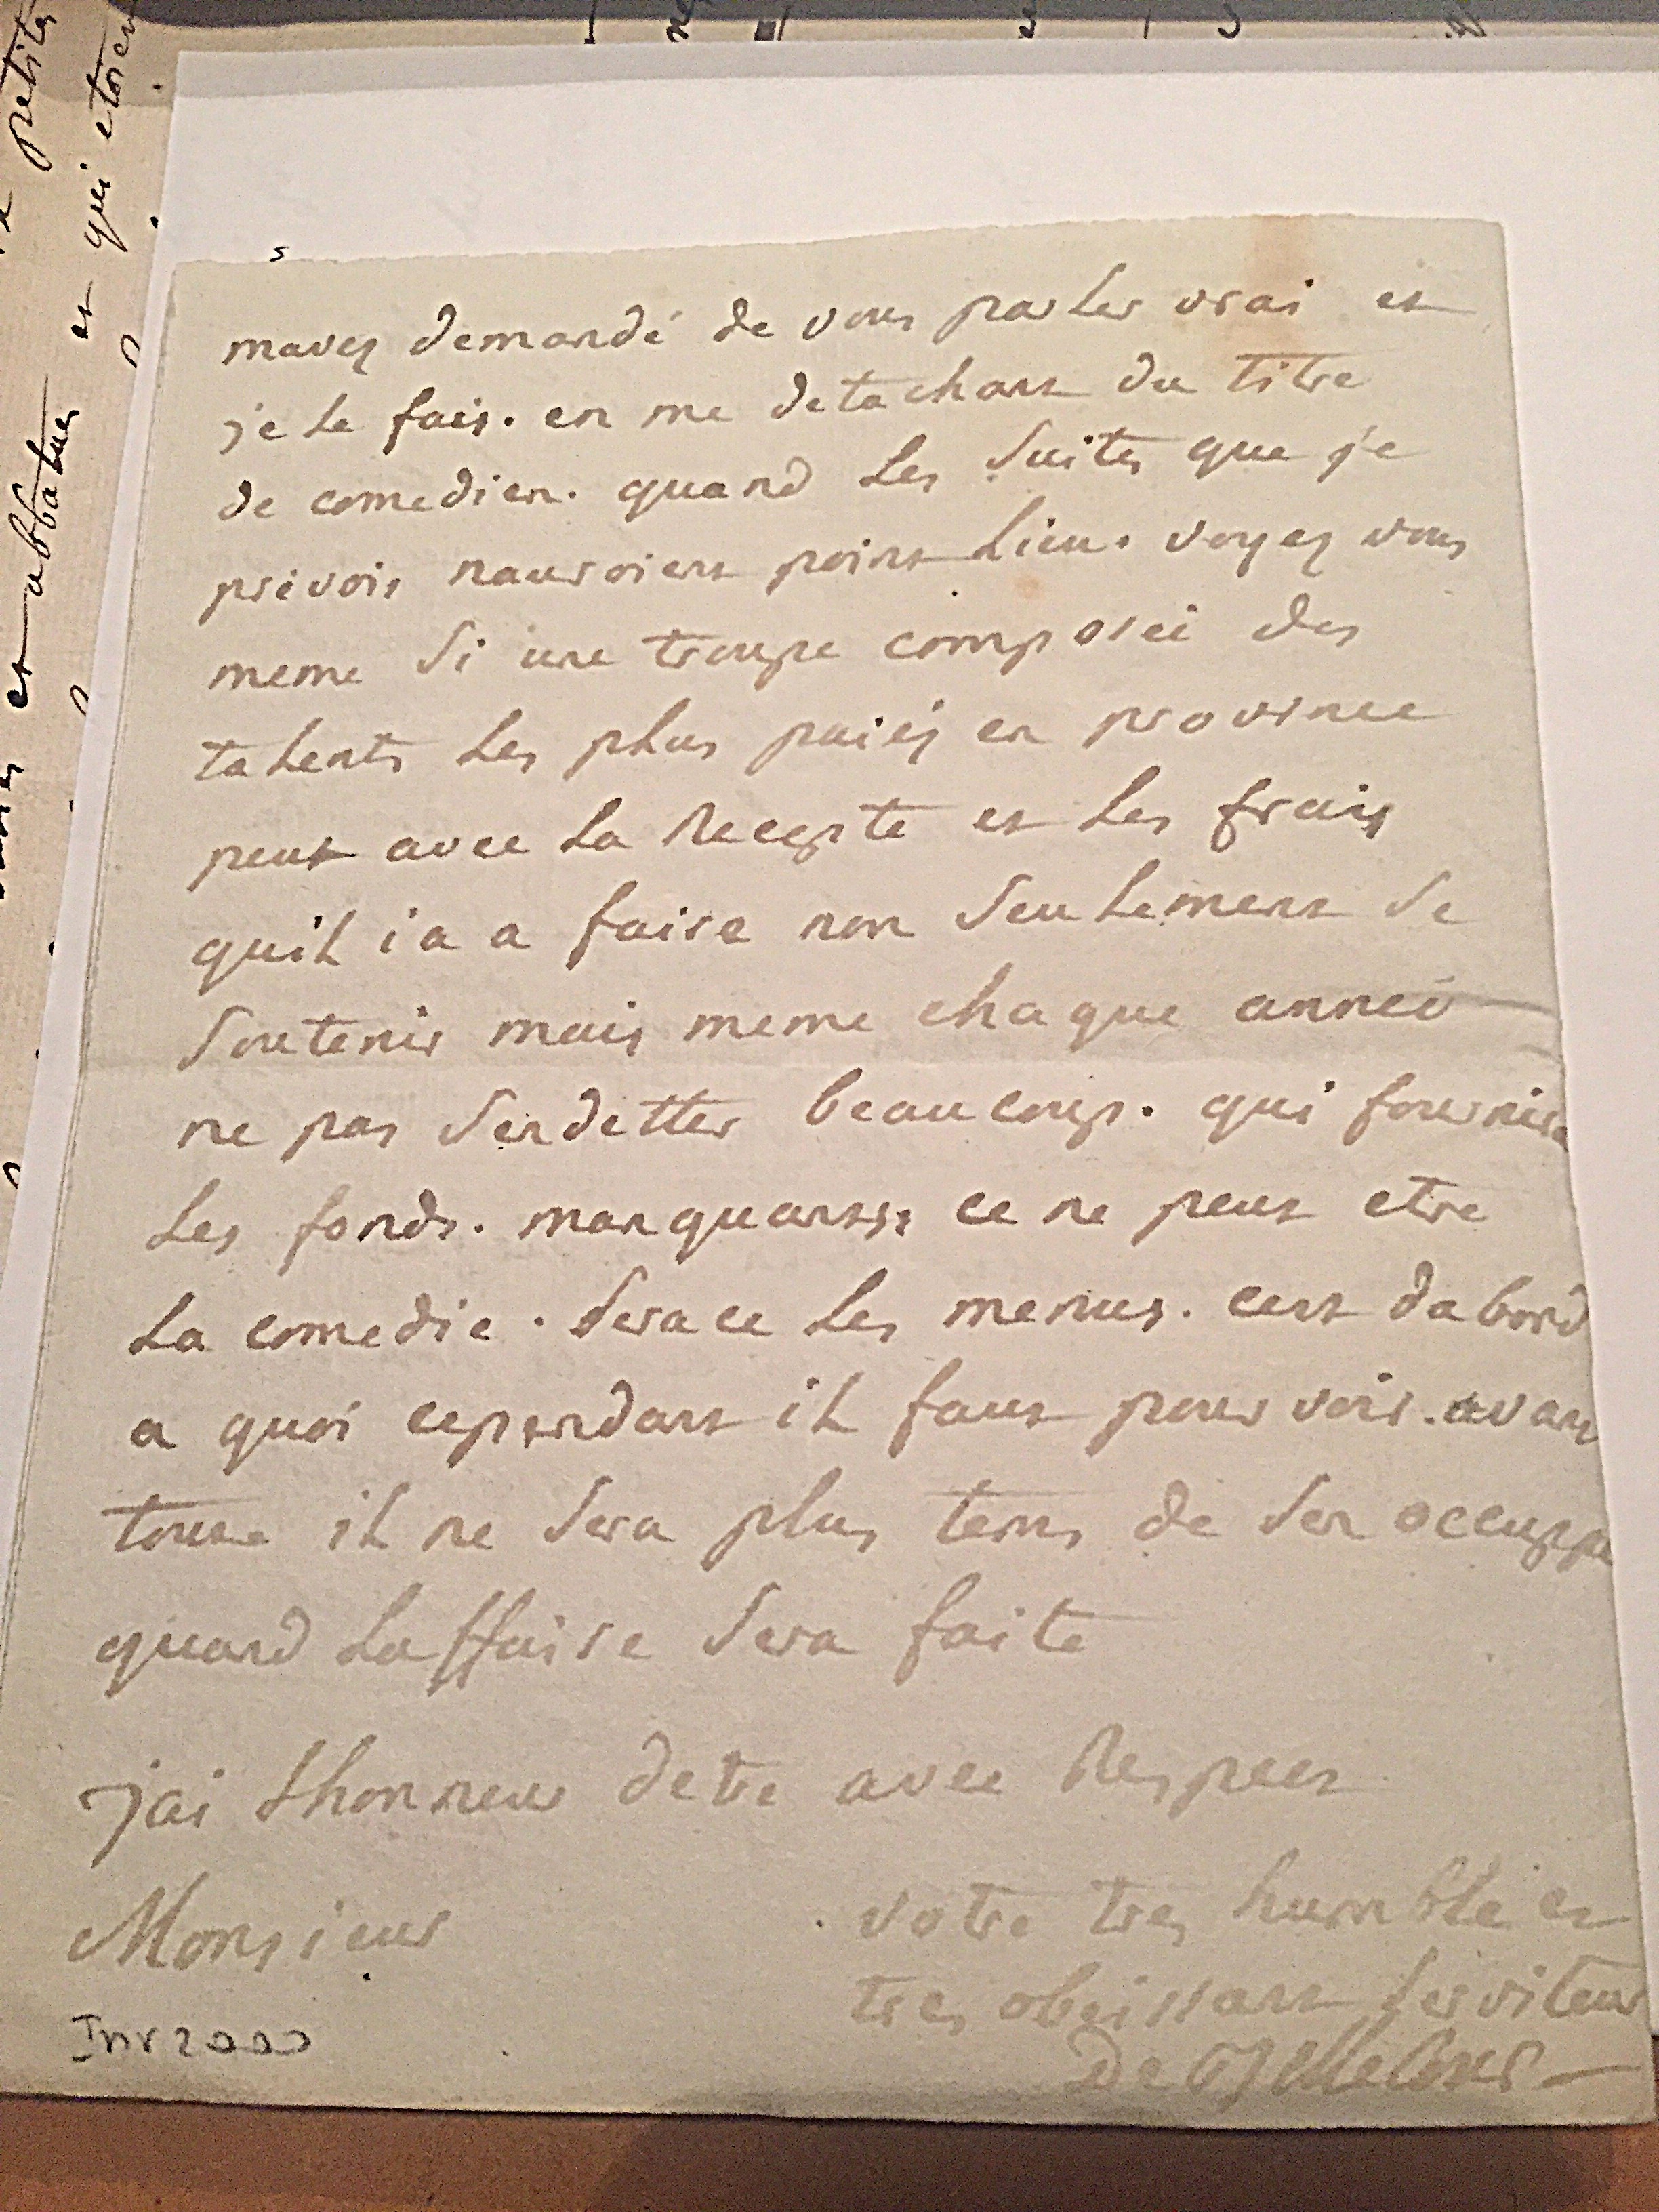 mavez demandé de vous parler vrai et
je le fais. en me detachant du titre
de comedien. quand les suites que je
prévois nauroient point lieu. voyez vous
meme si une troupe composée des
talents les plus paiés en province
peut avec la recepte et les frais
quil i a a faire non seulement se
soutenir mais meme chaque année
ne pas sendetter beaucoup. qui fournira
les fonds. manquants, ce ne peut etre
la comedie. sera ce les menus. cest dabord
a quoi cependant il faut pourvoir. avant
tout il ne sera plus tems de sen occuppe
quand laffaire sera faite
jai lhonneur detre avec respect
Monsieur
votre tres humble et
tres obeissant serviteur
De Bellecour
Inv 2000
petite
et qui etoien
et abbatues